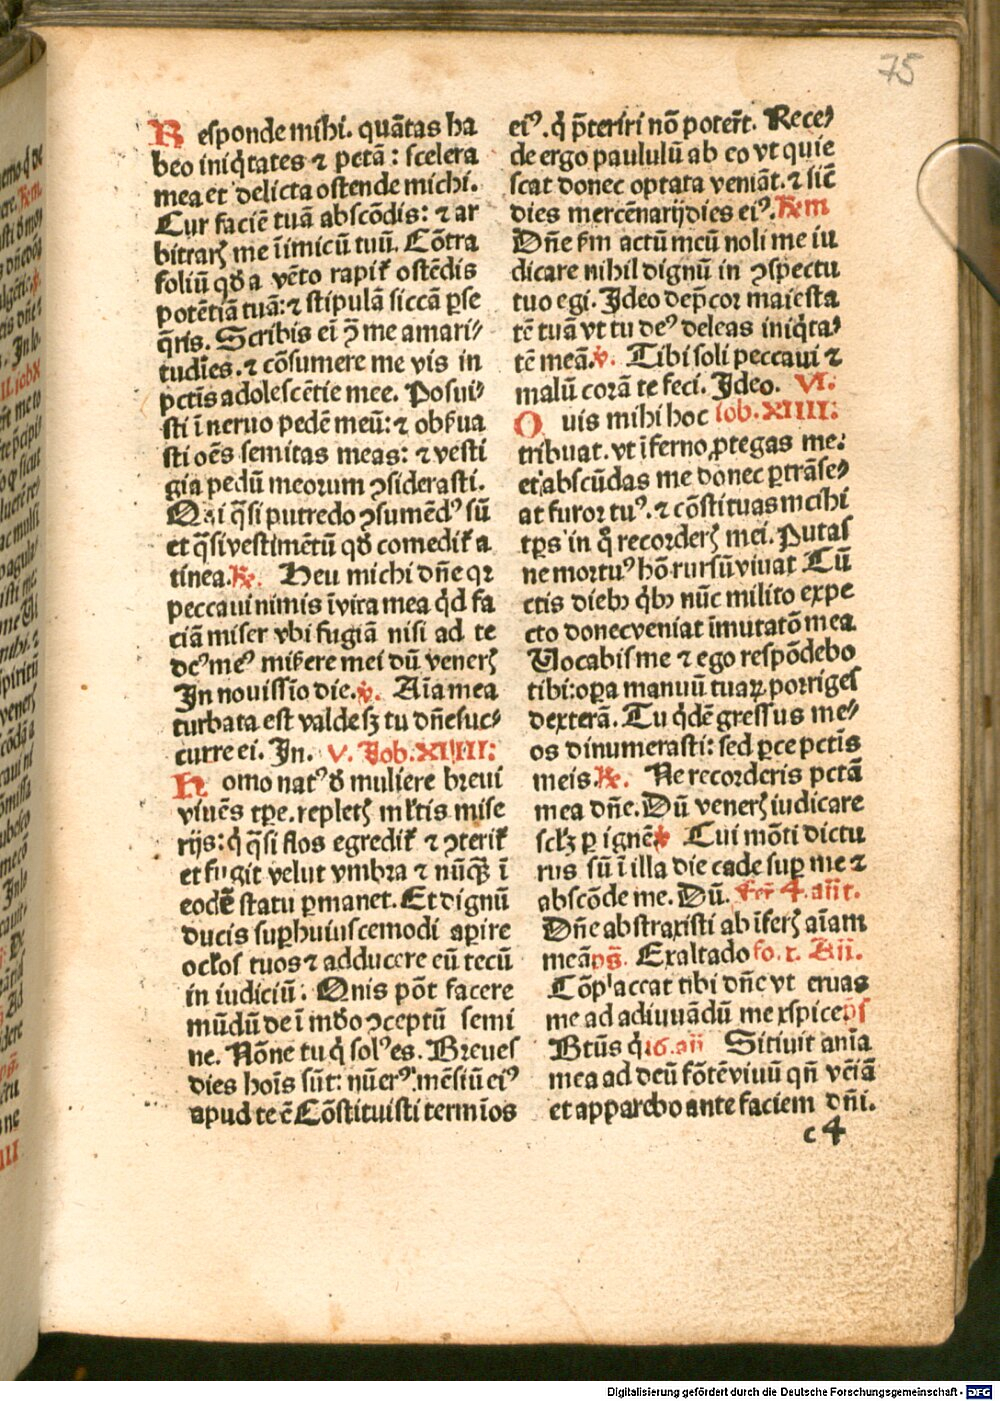 75
Responde mihi. quātas ha
beo iniq̄tates ⁊ petā: scelera
mea et delicta ostende michi.
Cur faciē tuā abscōdis: ⁊ ar
bitrarꝭ me īimicū tuū. Cōtra
foliū qđ a vēto rapit᷑ ostēdis
potētiā tuā: ⁊ stipulā siccā ꝑse
q̄ris. Scribis ei ꝫ me amari⸗
tudīes. ⁊ cōsumere me vis in
pctīs adolescētie mee. Posui⸗
sti ī neruo pedē meū: ⁊ obẜua
sti oēs semitas meas: ⁊ vesti
gia pedū meorum ꝯsiderasti.
Qui q̄si putredo ꝯsumēdꝰ sū
et q̄si vestimētū qđ comedit᷑ a
tinea. ℞. Heu michi dn̄e qꝛ
peccaui nimis ī vita mea q̇d fa
ciā miser vbi fugiā nisi ad te
deꝰ meꝰ miẜere mei dū venerꝭ
In nouissīo die. ℣. Aīa mea
turbata est valde sꝫ tu dn̄e suc⸗
curre ei. In. V. Job. XIIII:
Homo natꝰ đ muliere breui
viuēs tꝑe. repletꝭ ml̄tis mise
rijs: q̇ q̄si flos egredit᷑ ⁊ ꝯterit᷑
et fugit velut vmbra ⁊ nūq̄ꝫ ī
eodē statu ꝑmanet. Et dignū
ducis suꝑ huiuscemodi aꝑire
ocl̓os tuos ⁊ adducere eū tecū
in iudiciū. Qnis pōt facere
mūdū de ī mđo ꝯceptū semi
ne. Nōne tu q̇ solꝰ es. Breues
dies hoīs sūt: nūerꝰ. mēsiū eiꝰ
apud te ē Cōstituisti termīos
eiꝰ. q̇ p̄teriri nō poter̄t. Rece⸗
de ergo paululū ab eo vt quie
scat donec optata veniāt. ⁊ sic̄
dies mercēnarij dies eiꝰ. ℞m
Dn̄e ẜm actū meū noli me iu
dicare nihil dignū in ꝯspectu
tuo egi. Ideo dep̄cor maiesta
tē tuā vt tu deꝰ deleas iniq̇ta⸗
tē meā. ℣. Tibi soli peccaui ⁊
malū corā te feci. Ideo. VI.
Quis mihi hoc iob. XIIII:
tribuat. vt īferno ꝓtegas me:
et abscūdas me donec ꝑtrāse⸗
at furor tuꝰ. ⁊ cōstituas mcihi
tꝑs in q̊ recorderꝭ mei. Putas
ne mortuꝰ hō rursū viuat Cū
ctis diebꝫ q̇bꝫ nūc milito expe
cto donec veniat īmutatō mea
Vocabis me ⁊ ego respōdebo
tibi: oꝑa manuū tuaꝝ porriges
dexterā. Tu q̇dē gressus me⸗
os dinumerasti: sed ꝑce pctīs
meis. ℞. Ne recorderis pctā
mea dn̄e. Dū venerꝭ iudicare
scl̄ꝫ ꝑ ignē ℣ Cui mōti dictu
rus sū ī illa die cade suꝑ me ⁊
abscōde me. Dū. Fer̄ 4. añt.
Dn̄e abstraxisti ab īferꝭ aīam
meā ps̄. Exaltado fo. r. Aii.
Cōpl̓accat tibi dn̄e vt eruas
me ad adiuuādū me rspice ps
Btūs q̇ 16. aīi Sitiuit anīa
mea ad deū fōtē viuū qn̄ vēiā
et apparebo ante faciem dn̄i.
c 4
Digitalisierung gefördert durch die Deutsche Forschungsgemeinschaft - DFG